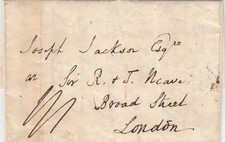 Joseph Jackson Esqre
at Sir R. & T. Neave
Broad Street
London